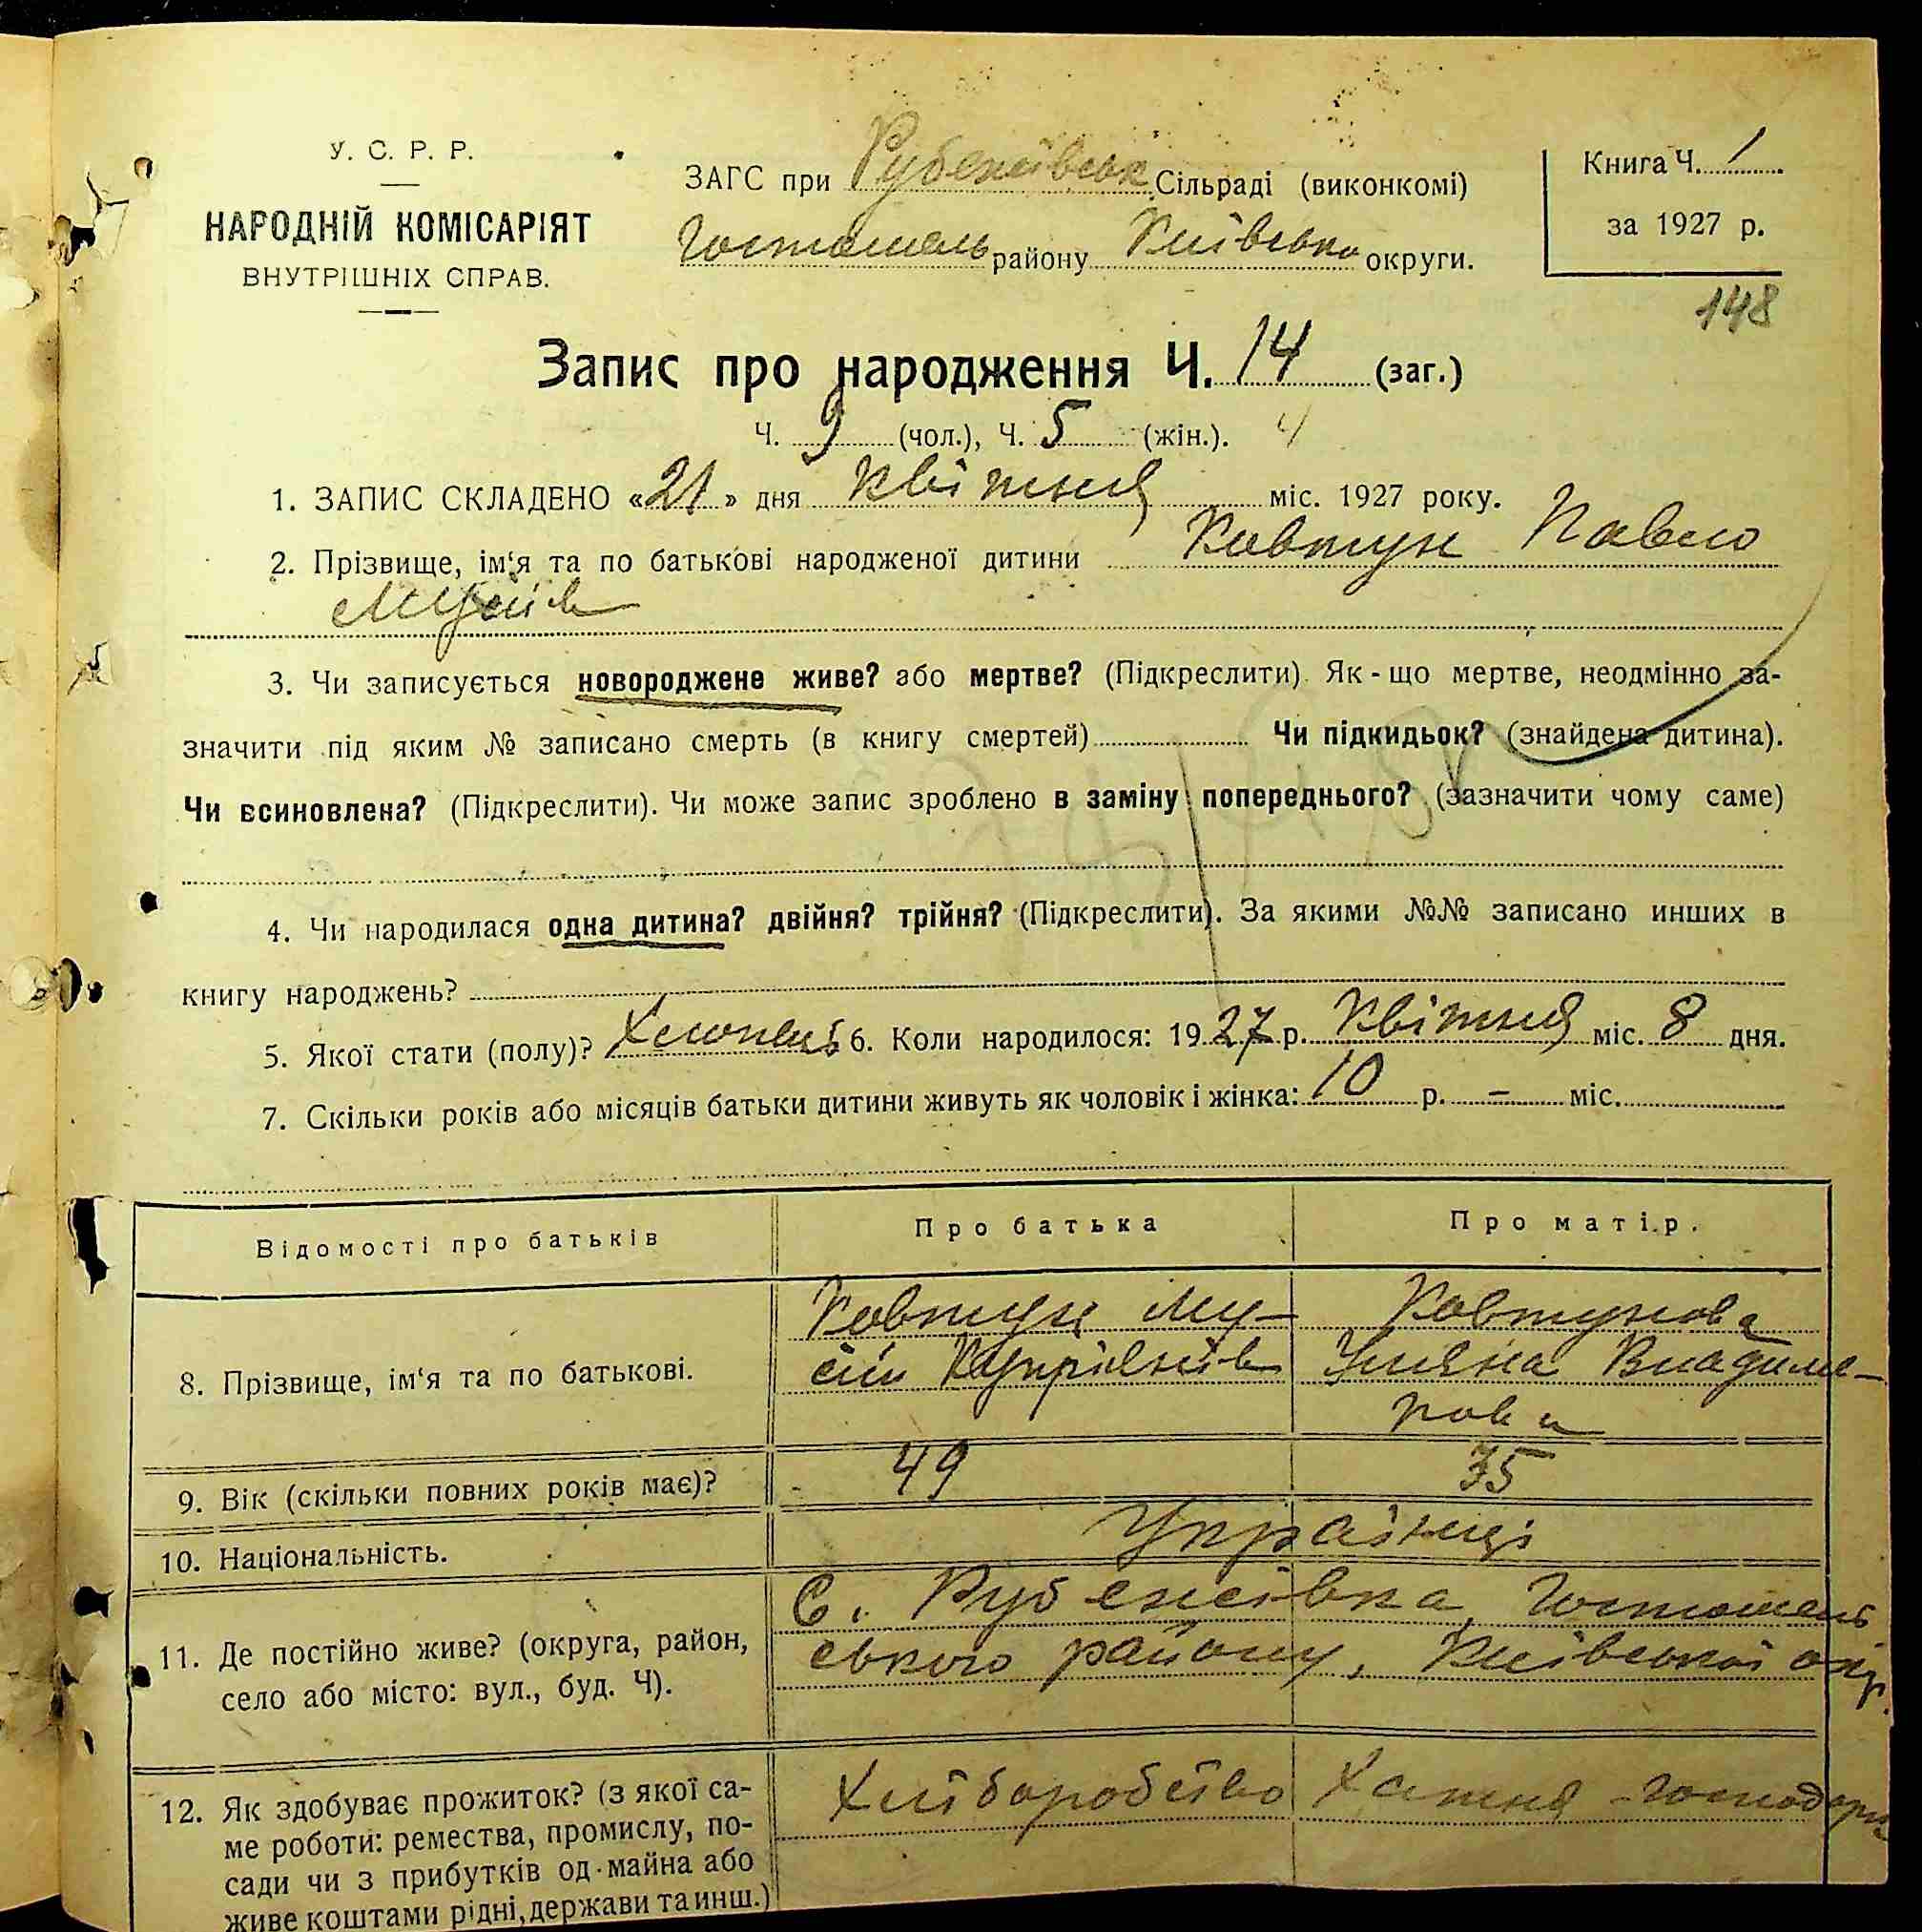 У. С. Р. Р.
НАРОДНІЙ КОМІСАРІЯТ
ВНУТРІШНІХ СПРАВ.
ЗАГС при Рубежівськ Сільраді (виконкомі)
Гостомель району Київсько округи.
Книга Ч. 1
за 1927 р.
148
Запис про народження Ч. 14 (заг.)
Ч. 9 (чол.), Ч. 5 (жін.). 4
1. ЗАПИС СКЛАДЕНО «21» дня квітня міс. 1927 року.
2. Прізвище, ім‘я та по батькові народженої дитини Ковтун Павло
Мусіїв
3. Чи записується новороджене живе? або мертве? (Підкреслити). Як-що мертве, неодмінно за-
значити під яким № записано смерть (в книгу смертей) Чи підкидьок? (знайдена дитина).
Чи всиновлена? (Підкреслити). Чи може запис зроблено в заміну попереднього? (зазначити чому саме)
4. Чи народилася одна дитина? двійня? трійня? (Підкреслити). За якими №№ записано инших в
книгу народжень?
5. Якої стати (полу)? Хлопець 6. Коли народилося: 1927 р. квітня міс. 8 дня.
7. Скільки років або місяців батьки дитини живуть як чоловік і жінка: 10 р. – міс.
Відомості про батьків Про батька Про матір.
8. Прізвище, ім‘я та по батькові.
Ковтун Му-
сій Купріянів
Ковтунова
Уляна Владими-
рова
9. Вік (скільки повних років має)? 49 35
10. Національність. Українці
11. Де постійно живе? (округа, район,
село або місто: вул., буд. Ч).
С. Рубежівка, Гостомель
ського району, Київської окр.
12. Як здобуває прожиток? (з якої са-
ме роботи: ремества, промислу, по-
сади чи з прибутків од майна або
живе коштами рідні, держави та инш.)
Хліборобство
Хатня господарка